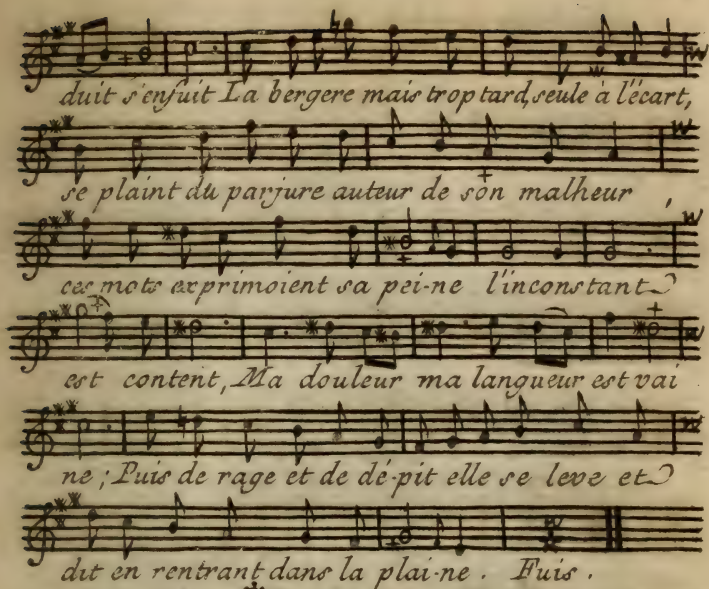 duit s'enfuit La bergere mais trop tard, seule à l'écart,
se plaint du parjure auteur de son malheur ,
ces mots exprimoient sa pei-ne l'inconstant
est content, Ma douleur ma langueur est vai
ne ; Puis de rage et de dé-pit elle se leve et
dit en rentrant dans la plai-ne . Fuis .